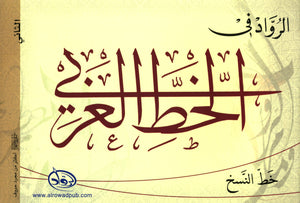 الرواد في
الخط العربي
خط النسخ
الرواد
www.alrowadpub.com